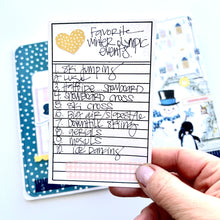 Favorite
winter olympic
events.
1. ski jumping
2. luge
3. halfpipe snowboard
4. snowboard cross
5. ski cross
6. big air/slopestyle
7. downhill skiing
8. aerials
9. moguls
10. ice dancing